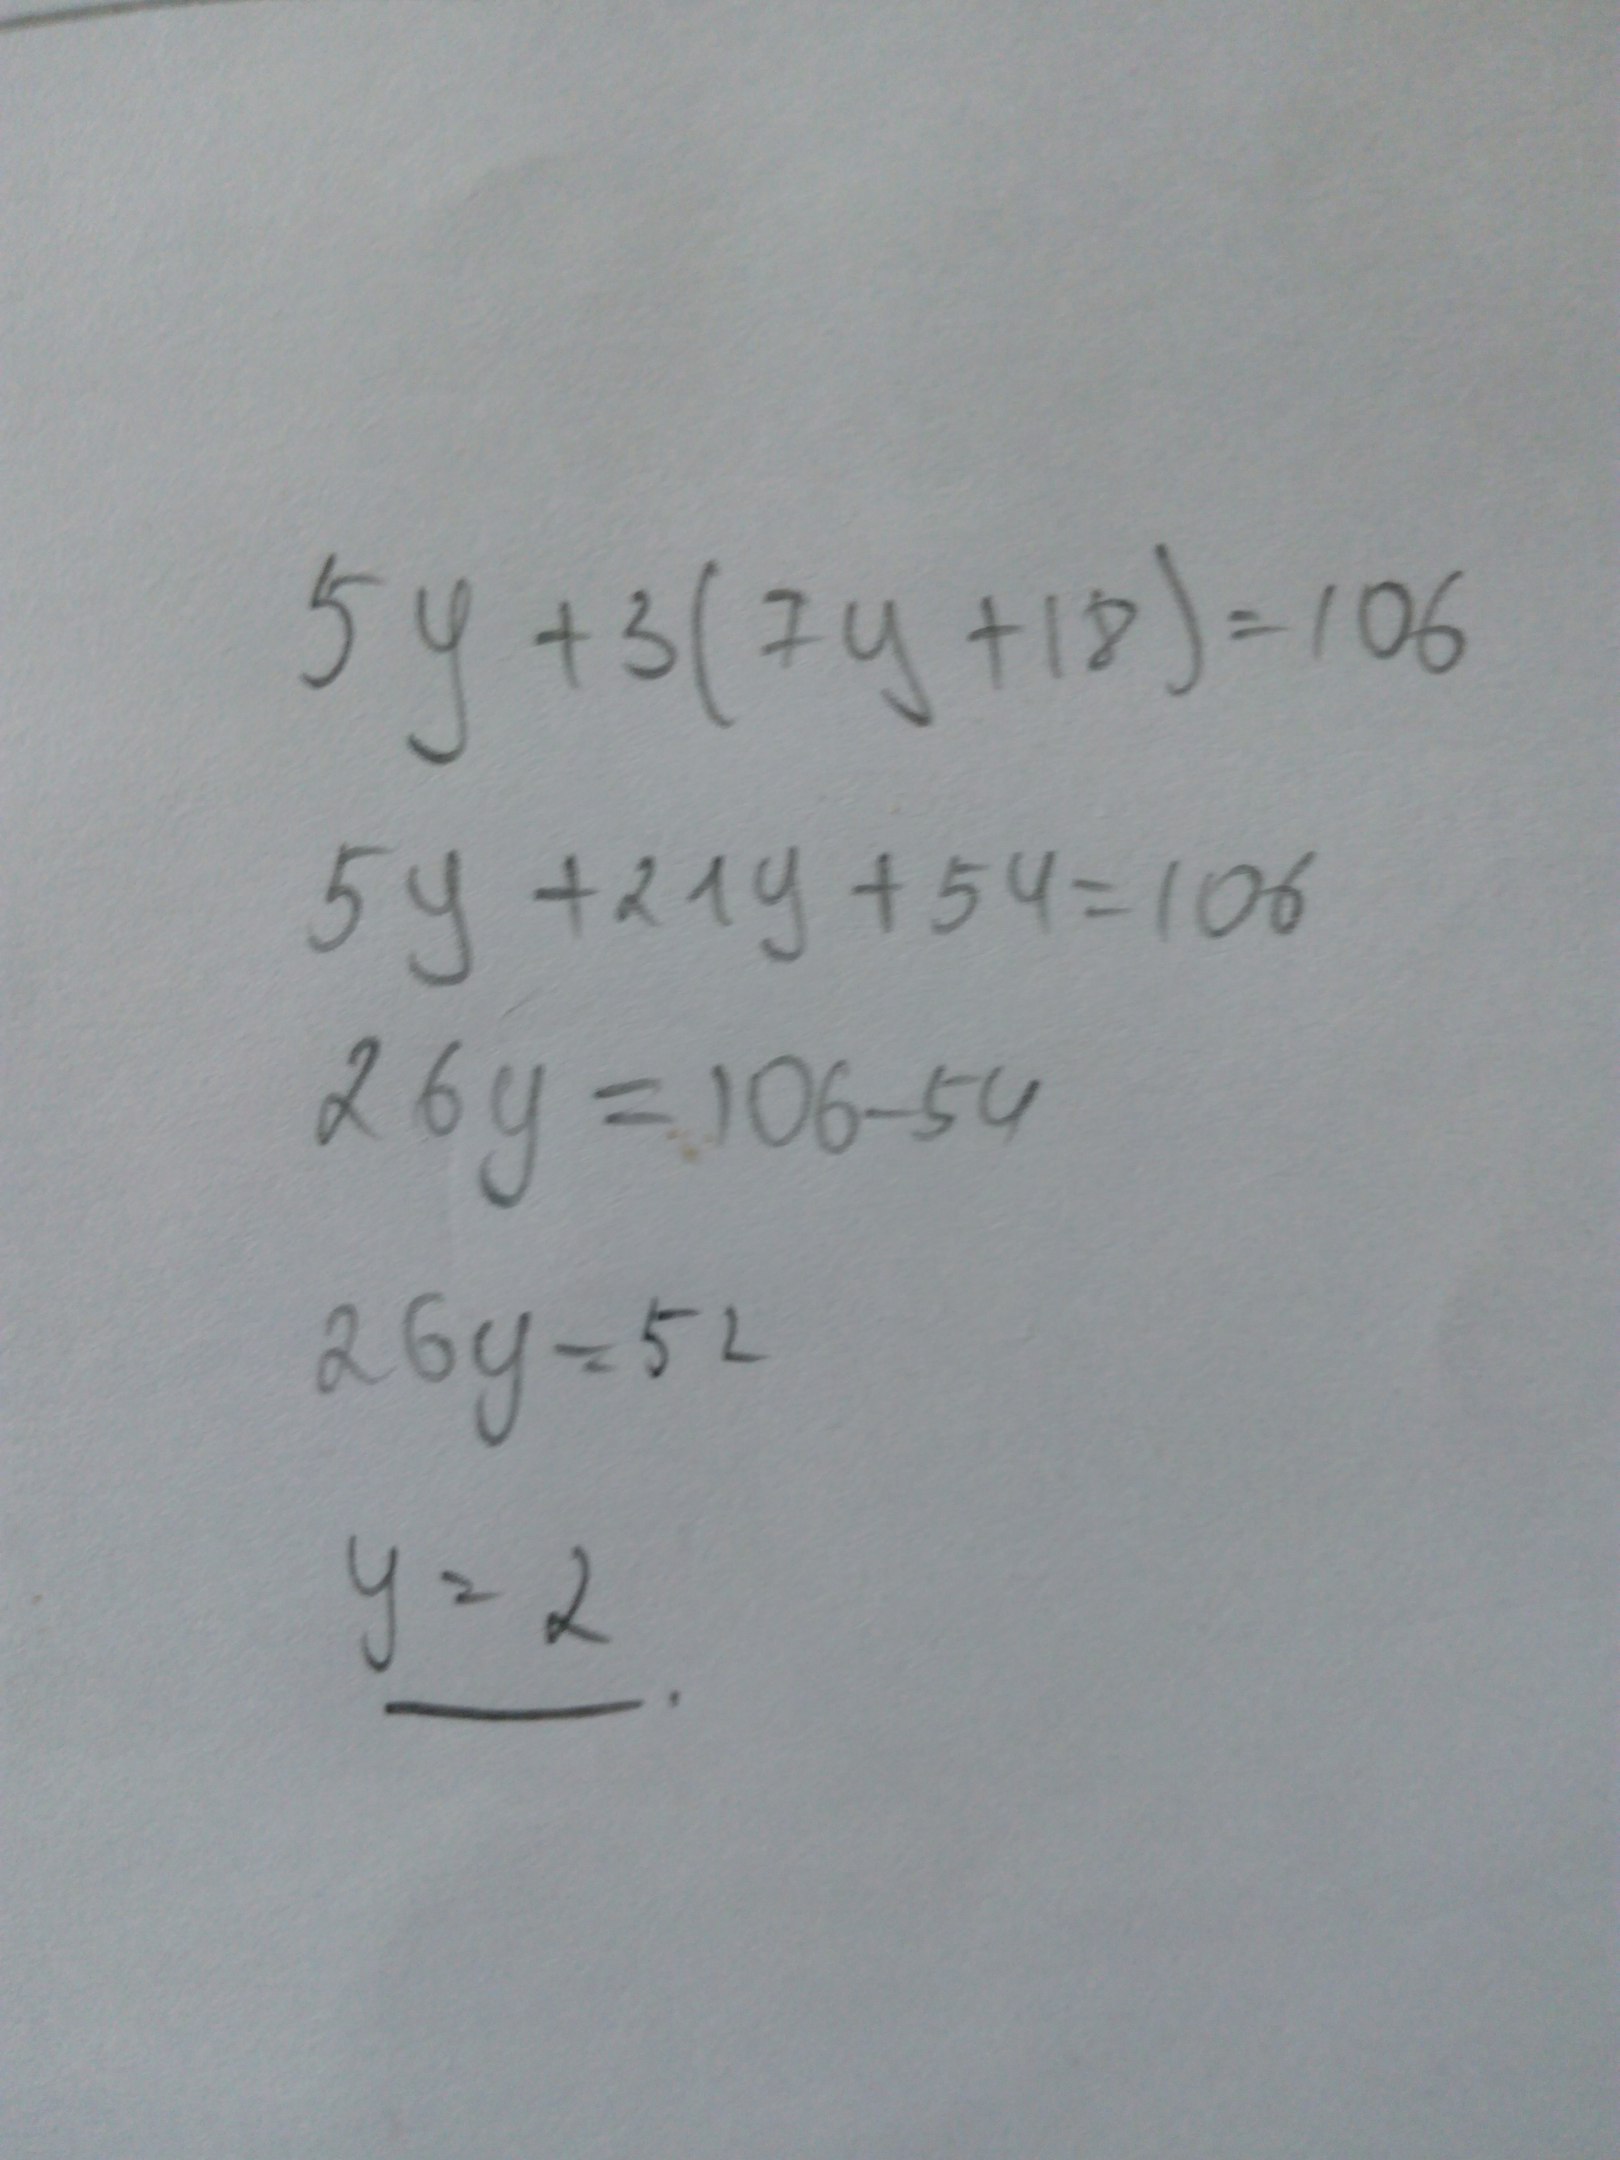 5y+3(7y+18)=106
5y+21y+54=106
26y=106-54
26y=52
y=2.